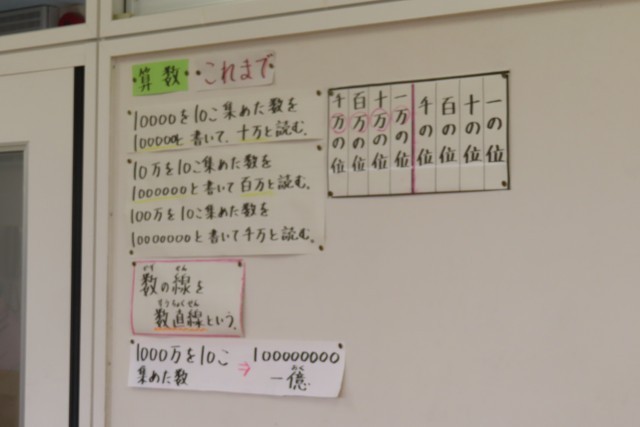 算数 これまで
10000を10こ集めた数を
100000と書いて、十万と読む。
10万を10こ集めた数を
1000000と書いて百万と読む。
100万を10こ集めた数を
10000000と書いて千万と読む。
千万の位 百万の位 十万の位 一万の位 千の位 百の位 十の位 一の位
かず せん
数の線を
すうちょくせん
数直線という。
1000万を10こ
集めた数
⇒
100000000
おく
一億